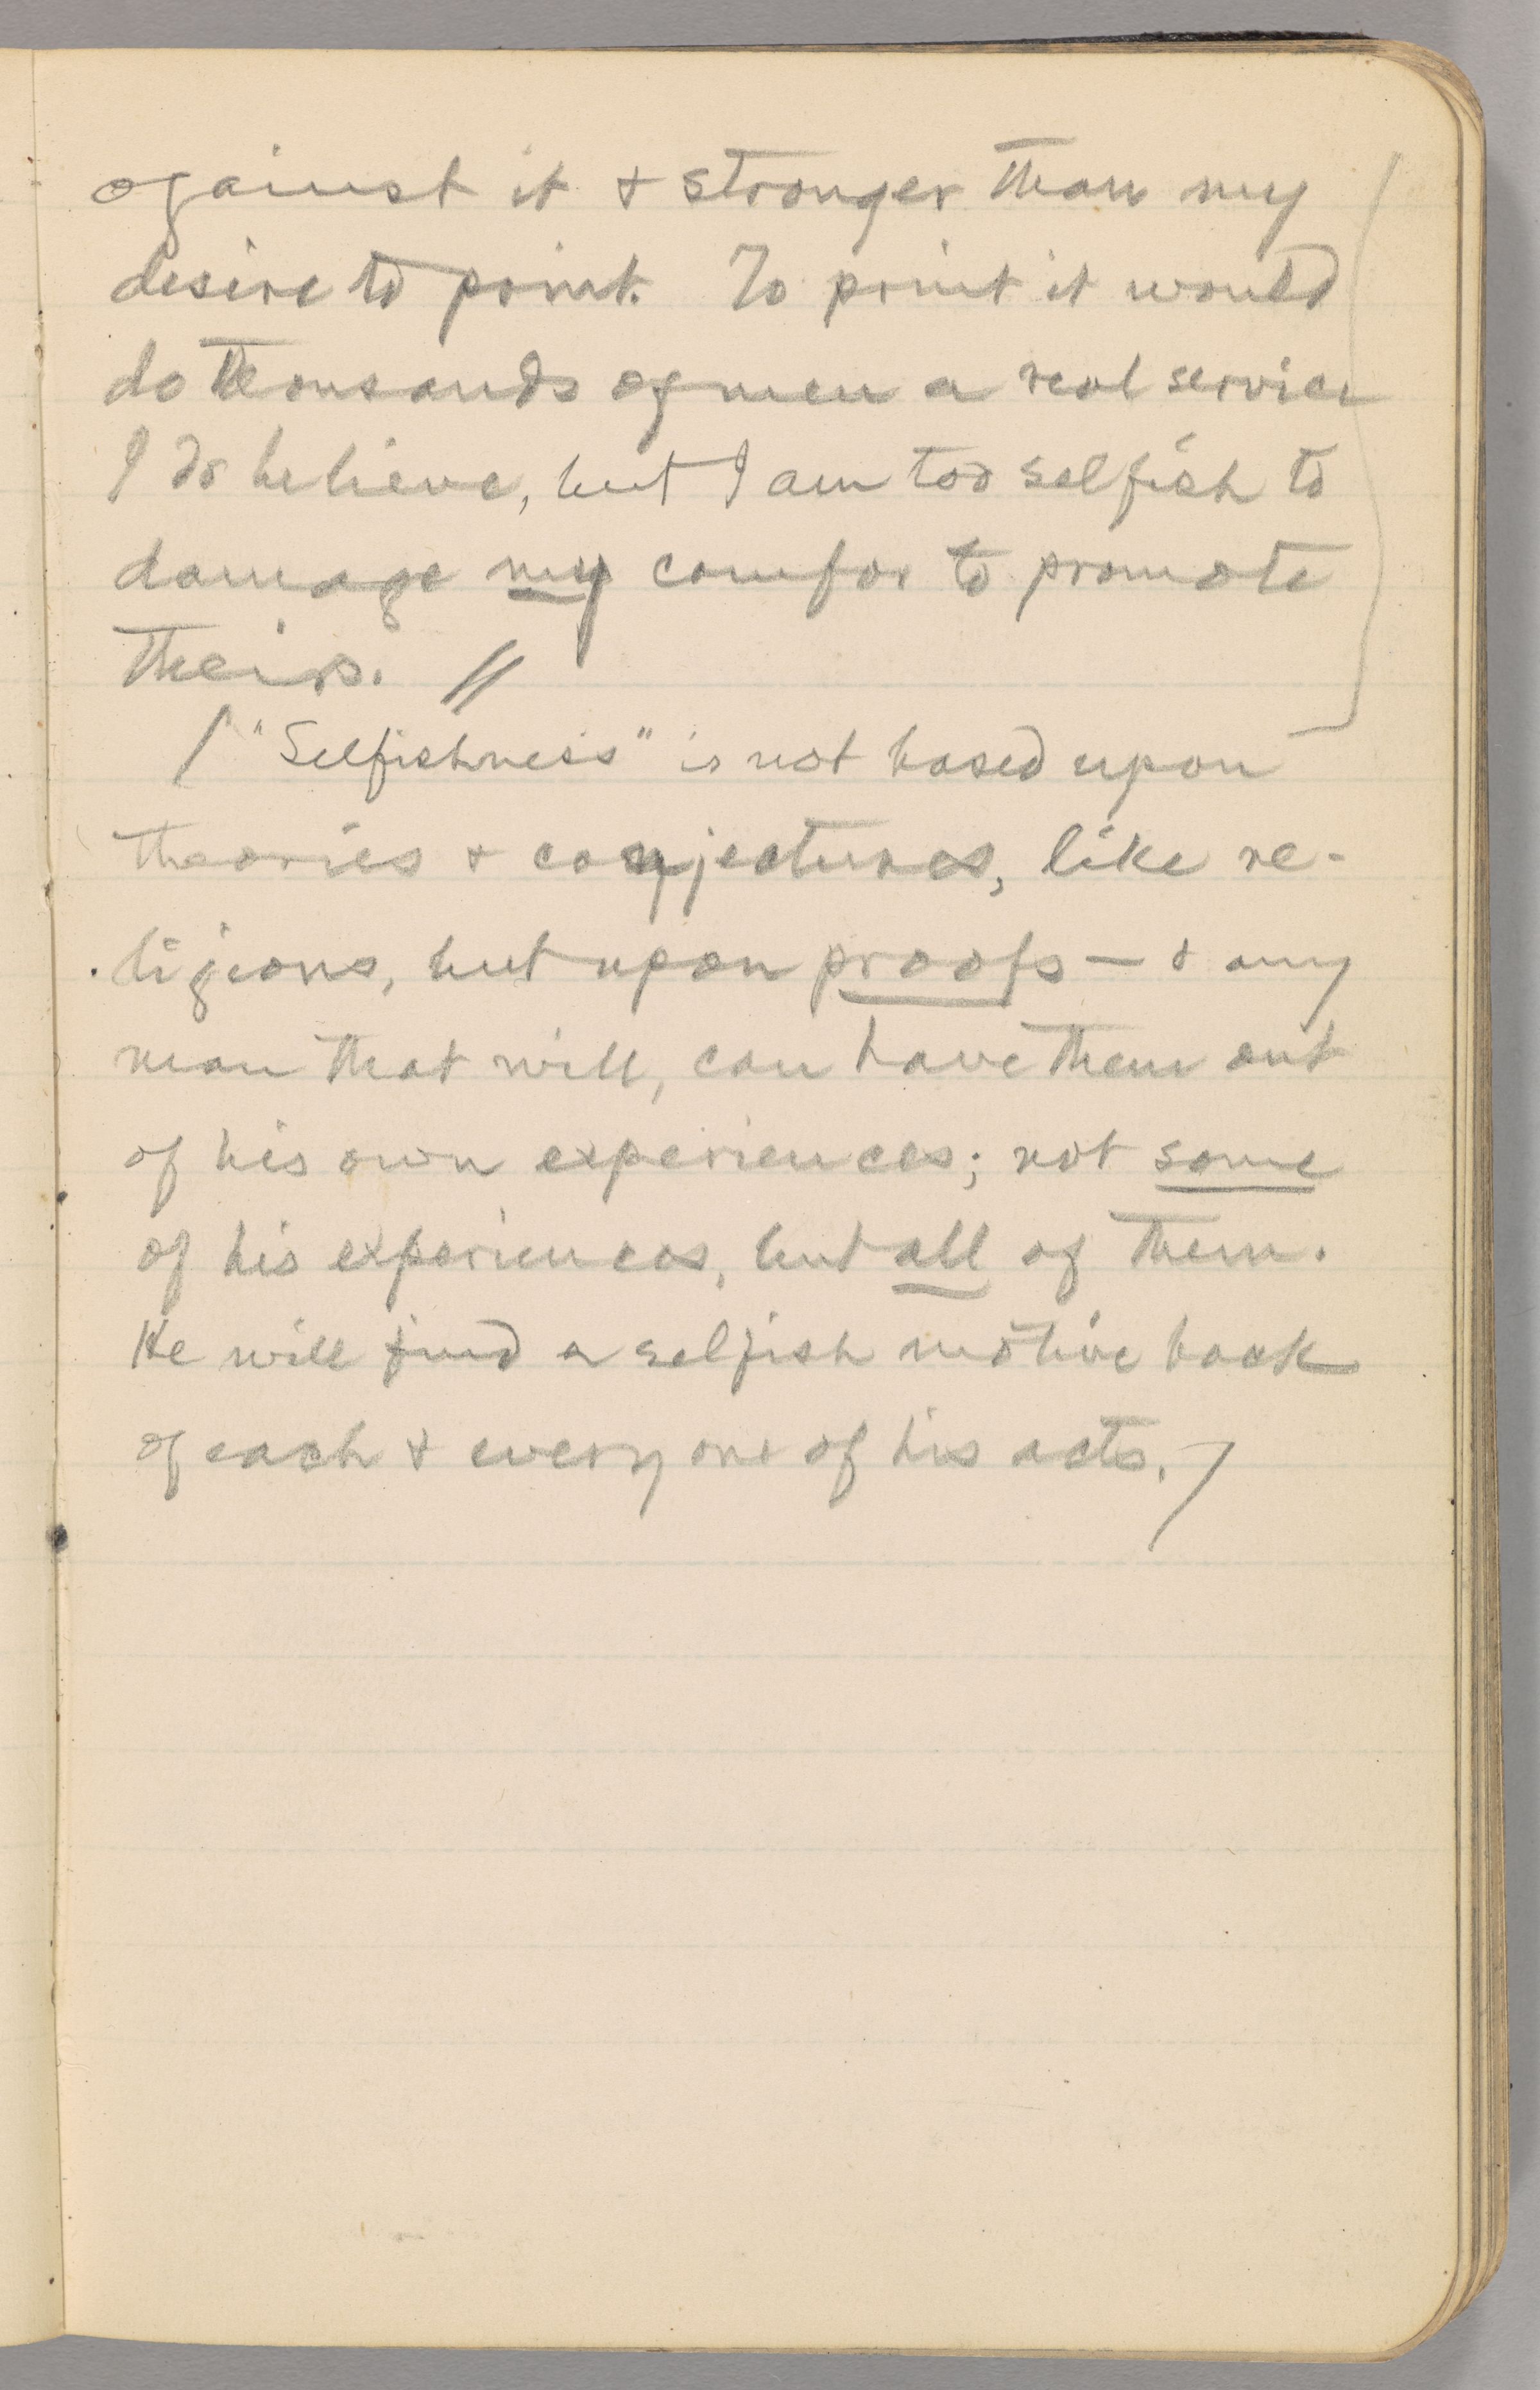 against it & stronger than my
desire to print. To print it would
do thousands of men a real service
I do believe, but I am too selfish to
damage my comfor to promote
theirs. //
/ "Selfishness" is not based upon
theories & conjectures, like re-
ligions, but upon proofs — & any
man that will, can have them out
of his own experiences; not some
of his experiences, but all of them.
He will find a selfish motive back
of each & every one of his acts. /